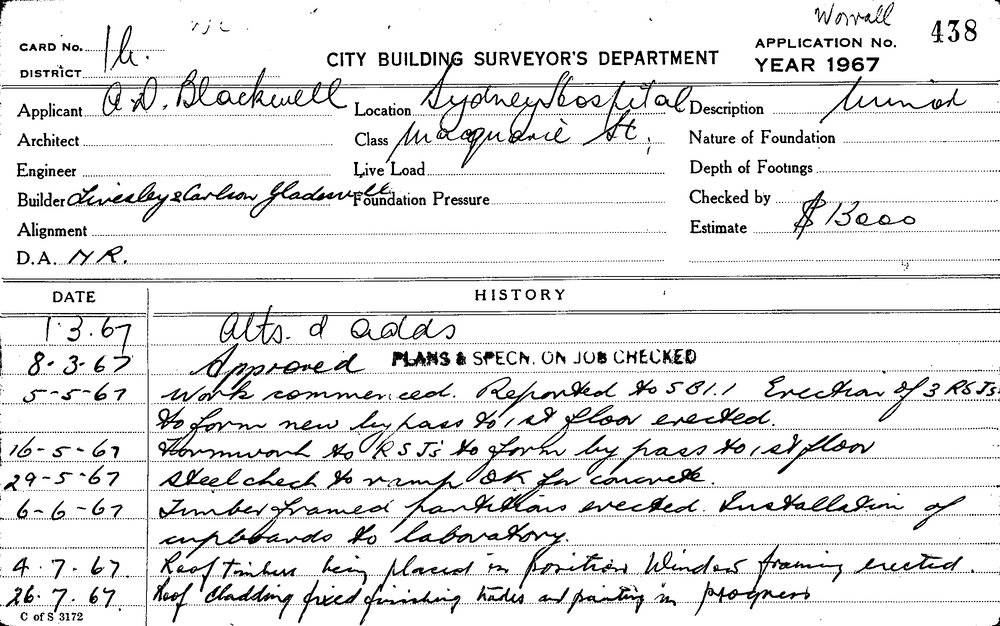 Worrall
CARD No. 1h. APPLICATION No. 438
DISTRICT CITY BUILDING SURVEYOR'S DEPARTMENT YEAR 1967
Applicant A.D. Blackwell Location Sydney Hospital Description Minor
Architect Class Macquarie St, Nature of Foundation
Engineer Live Load Depth of Footings
Builder Livesley & Carlson Gladesville Foundation Pressure Checked by
Alignment Estimate $13000
D.A. NR.
DATE HISTORY
1.3.67 Alts. & adds
8-3-67 Approved PLANS & SPECN. ON JOB CHECKED
5-5-67 Work commenced. Reported to SBI.1 Erection of 3 RSJs.
to form new bypass to 1st floor erected.
16-5-67 Formwork to RSJ's to form by pass to 1st floor
29-5-67 Steel check to ramp OK for concrete.
6-6-67 Timber framed partitions erected. Installation of
cupboards to laboratory.
4.7.67. Roof timbers being placed in position Window framing erected.
26.7.67. Roof cladding fixed finishing trades and painting in progress
C of S 3172